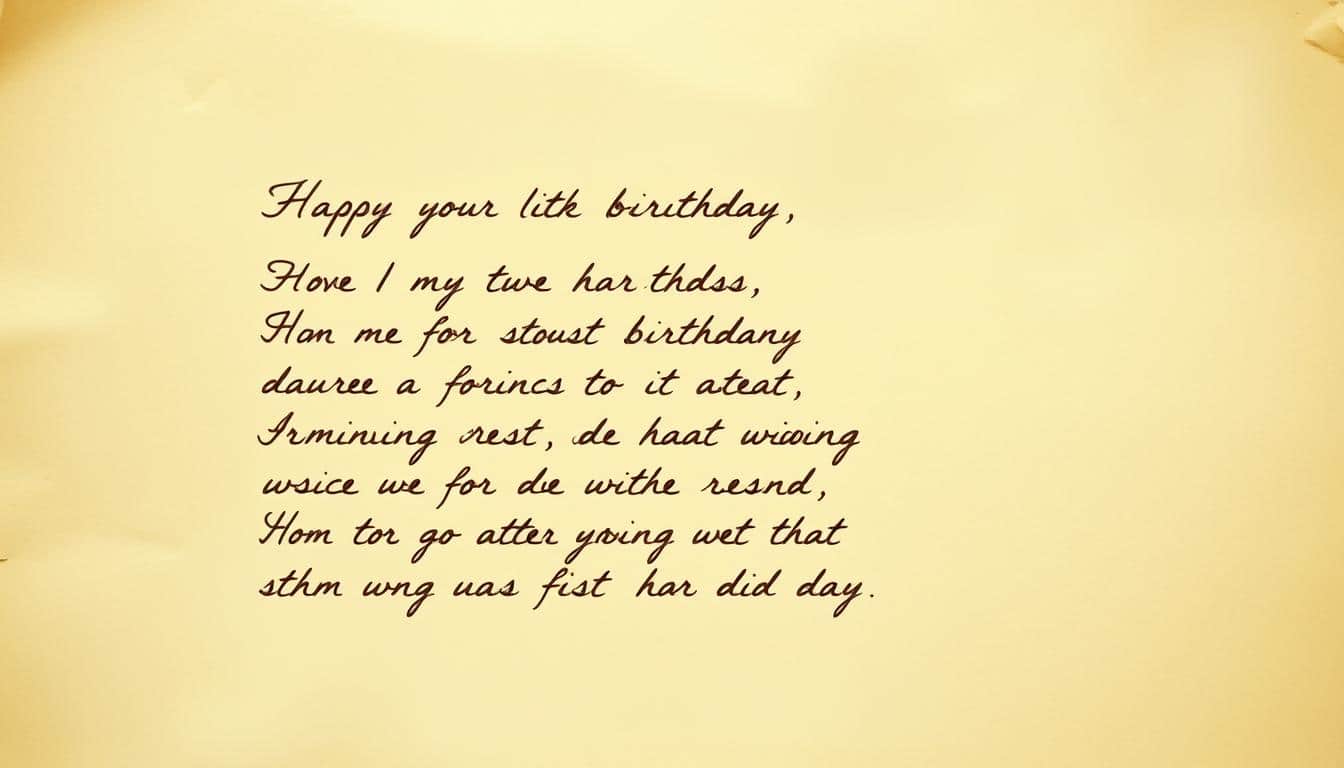 Happy your litk birithday,
Hove I my twe har thdss,
Han me for stoust birthdany
dauree a forincs to it ateat,
Irminuing rest, de haat wicoing
wsice we for die withe resnd,
Hom tor go atter yoing wet that
sthm wng uas fist har did day.